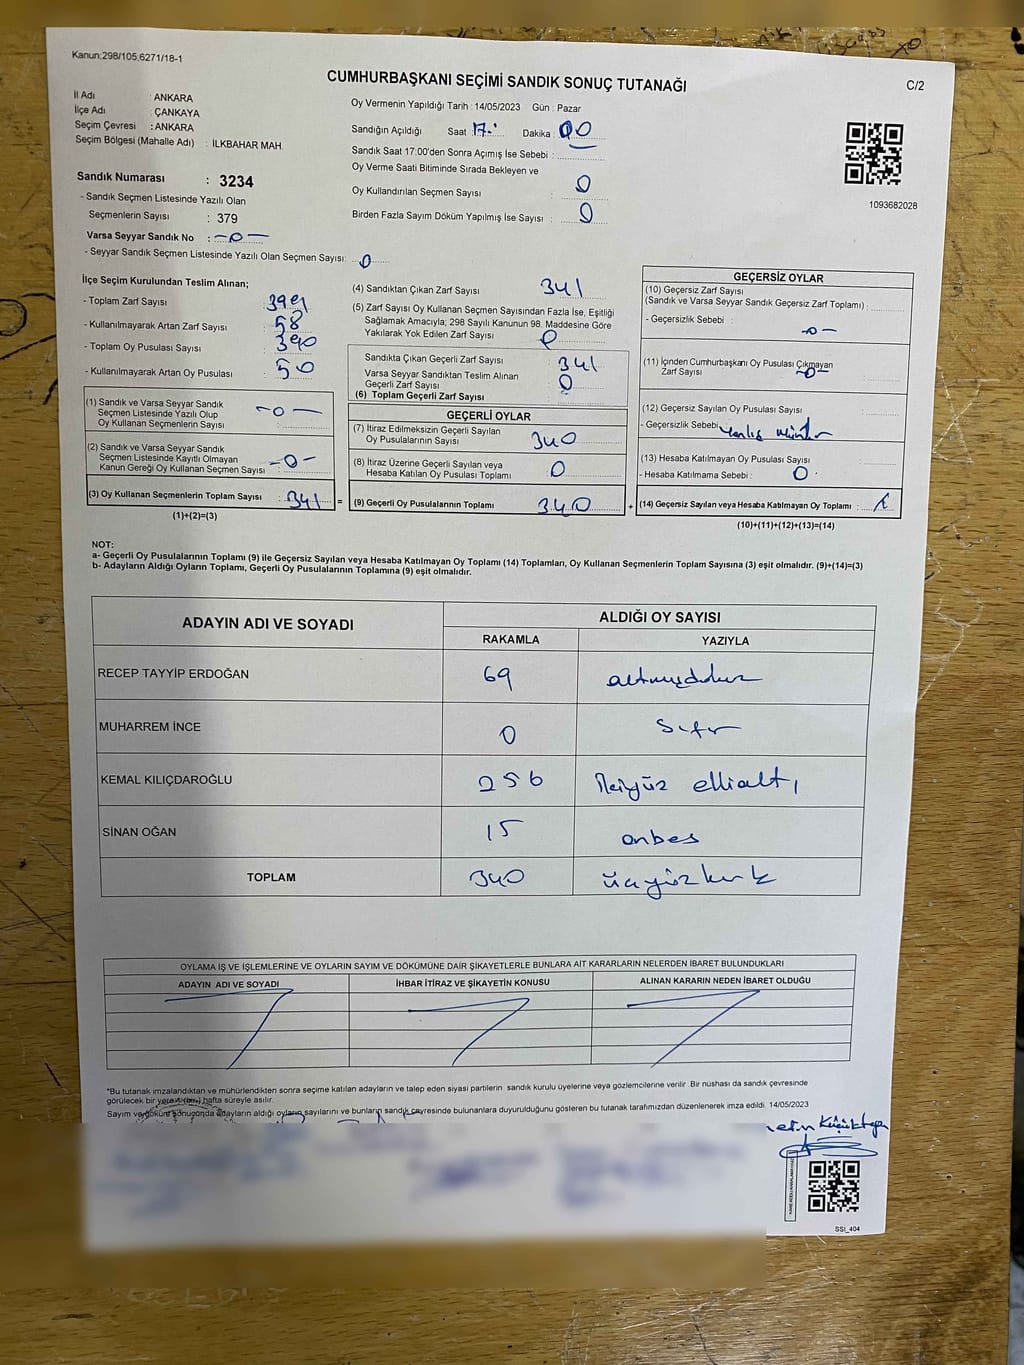 Kanun:298/105,6271/18-1
CUMHURBAŞKANI SEÇİMİ SANDIK SONUÇ TUTANAĞI
C/2
İl Adı : ANKARA
İlçe Adı : ÇANKAYA
Seçim Çevresi : ANKARA
Seçim Bölgesi (Mahalle Adı) : İLKBAHAR MAH.
Sandık Numarası : 3234
- Sandık Seçmen Listesinde Yazılı Olan
Seçmenlerin Sayısı : 379
Varsa Seyyar Sandık No : -0-
- Seyyar Sandık Seçmen Listesinde Yazılı Olan Seçmen Sayısı: 0
Oy Vermenin Yapıldığı Tarih : 14/05/2023 Gün : Pazar
Sandığın Açıldığı Saat 17 Dakika : 00
Sandık Saat 17:00'den Sonra Açımış İse Sebebi :
Oy Verme Saati Bitiminde Sırada Bekleyen ve
Oy Kullandırılan Seçmen Sayısı : 0
Birden Fazla Sayım Döküm Yapılmış İse Sayısı : 0
1093682028
İlçe Seçim Kurulundan Teslim Alınan;
- Toplam Zarf Sayısı :
- Kullanılmayarak Artan Zarf Sayısı : 58
- Toplam Oy Pusulası Sayısı : 390
- Kullanılmayarak Artan Oy Pusulası : 50
(1) Sandık ve Varsa Seyyar Sandık
Seçmen Listesinde Yazılı Olup
Oy Kullanan Seçmenlerin Sayısı : -0-
(2) Sandık ve Varsa Seyyar Sandık
Seçmen Listesinde Kayıtlı Olmayan
Kanun Gereği Oy Kullanan Seçmen Sayısı : -0-
(3) Oy Kullanan Seçmenlerin Toplam Sayısı : 341 =
(1)+(2)=(3)
(4) Sandıktan Çıkan Zarf Sayısı : 341
(5) Zarf Sayısı Oy Kullanan Seçmen Sayısından Fazla İse, Eşitliği
Sağlamak Amacıyla; 298 Sayılı Kanunun 98. Maddesine Göre
Yakılarak Yok Edilen Zarf Sayısı : 0
Sandıkta Çıkan Geçerli Zarf Sayısı : 341
Varsa Seyyar Sandıktan Teslim Alınan
Geçerli Zarf Sayısı : 0
(6) Toplam Geçerli Zarf Sayısı :
GEÇERLİ OYLAR
(7) İtiraz Edilmeksizin Geçerli Sayılan
Oy Pusulalarının Sayısı : 340
(8) İtiraz Üzerine Geçerli Sayılan veya
Hesaba Katılan Oy Pusulası Toplamı : 0
(9) Geçerli Oy Pusulalarının Toplamı : 340 +
GEÇERSİZ OYLAR
(10) Geçersiz Zarf Sayısı
(Sandık ve Varsa Seyyar Sandık Geçersiz Zarf Toplamı) :
- Geçersizlik Sebebi :
-0-
(11) İçinden Cumhurbaşkanı Oy Pusulası Çıkmayan
Zarf Sayısı : -0-
(12) Geçersiz Sayılan Oy Pusulası Sayısı :
- Geçersizlik Sebebi : Yanlış
(13) Hesaba Katılmayan Oy Pusulası Sayısı :
- Hesaba Katılmama Sebebi : 0
(14) Geçersiz Sayılan veya Hesaba Katılmayan Oy Toplamı : 1
(10)+(11)+(12)+(13)=(14)
NOT:
a- Geçerli Oy Pusulalarının Toplamı (9) ile Geçersiz Sayılan veya Hesaba Katılmayan Oy Toplamı (14) Toplamları, Oy Kullanan Seçmenlerin Toplam Sayısına (3) eşit olmalıdır. (9)+(14)=(3)
b- Adayların Aldığı Oyların Toplamı, Geçerli Oy Pusulalarının Toplamına (9) eşit olmalıdır.
ADAYIN ADI VE SOYADI
ALDIĞI OY SAYISI
RAKAMLA YAZIYLA
RECEP TAYYİP ERDOĞAN 69 altmışdokuz
MUHARREM İNCE 0 Sıfır
KEMAL KILIÇDAROĞLU 256 İkiyüz ellialtı
SİNAN OĞAN 15 onbeş
TOPLAM 340 üçyüzkırk
OYLAMA İŞ VE İŞLEMLERİNE VE OYLARIN SAYIM VE DÖKÜMÜNE DAİR ŞİKAYETLERLE BUNLARA AİT KARARLARIN NELERDEN İBARET BULUNDUKLARI
ADAYIN ADI VE SOYADI İHBAR İTİRAZ VE ŞİKAYETİN KONUSU ALINAN KARARIN NEDEN İBARET OLDUĞU
*Bu tutanak imzalandıktan ve mühürlendikten sonra seçime katılan adayların ve talep eden siyasi partilerin sandık kurulu üyelerine veya gözlemcilerine verilir. Bir nüshası da sandık çevresinde
görülecek bir yere 1 (bir) hafta süreyle asılır.
Sayım ve döküm sonucunda adayların aldığı oyların sayılarını ve bunların sandık çevresinde bulunanlara duyurulduğunu gösteren bu tutanak tarafımızdan düzenlenerek imza edildi. 14/05/2023
Küçüktepe
SSI_404